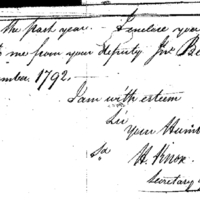 the past year. I enclose your
to me from your deputy Jno.
ember 1792.
I am with esteem
Sir
Your Humb
H. Knox
Secretary